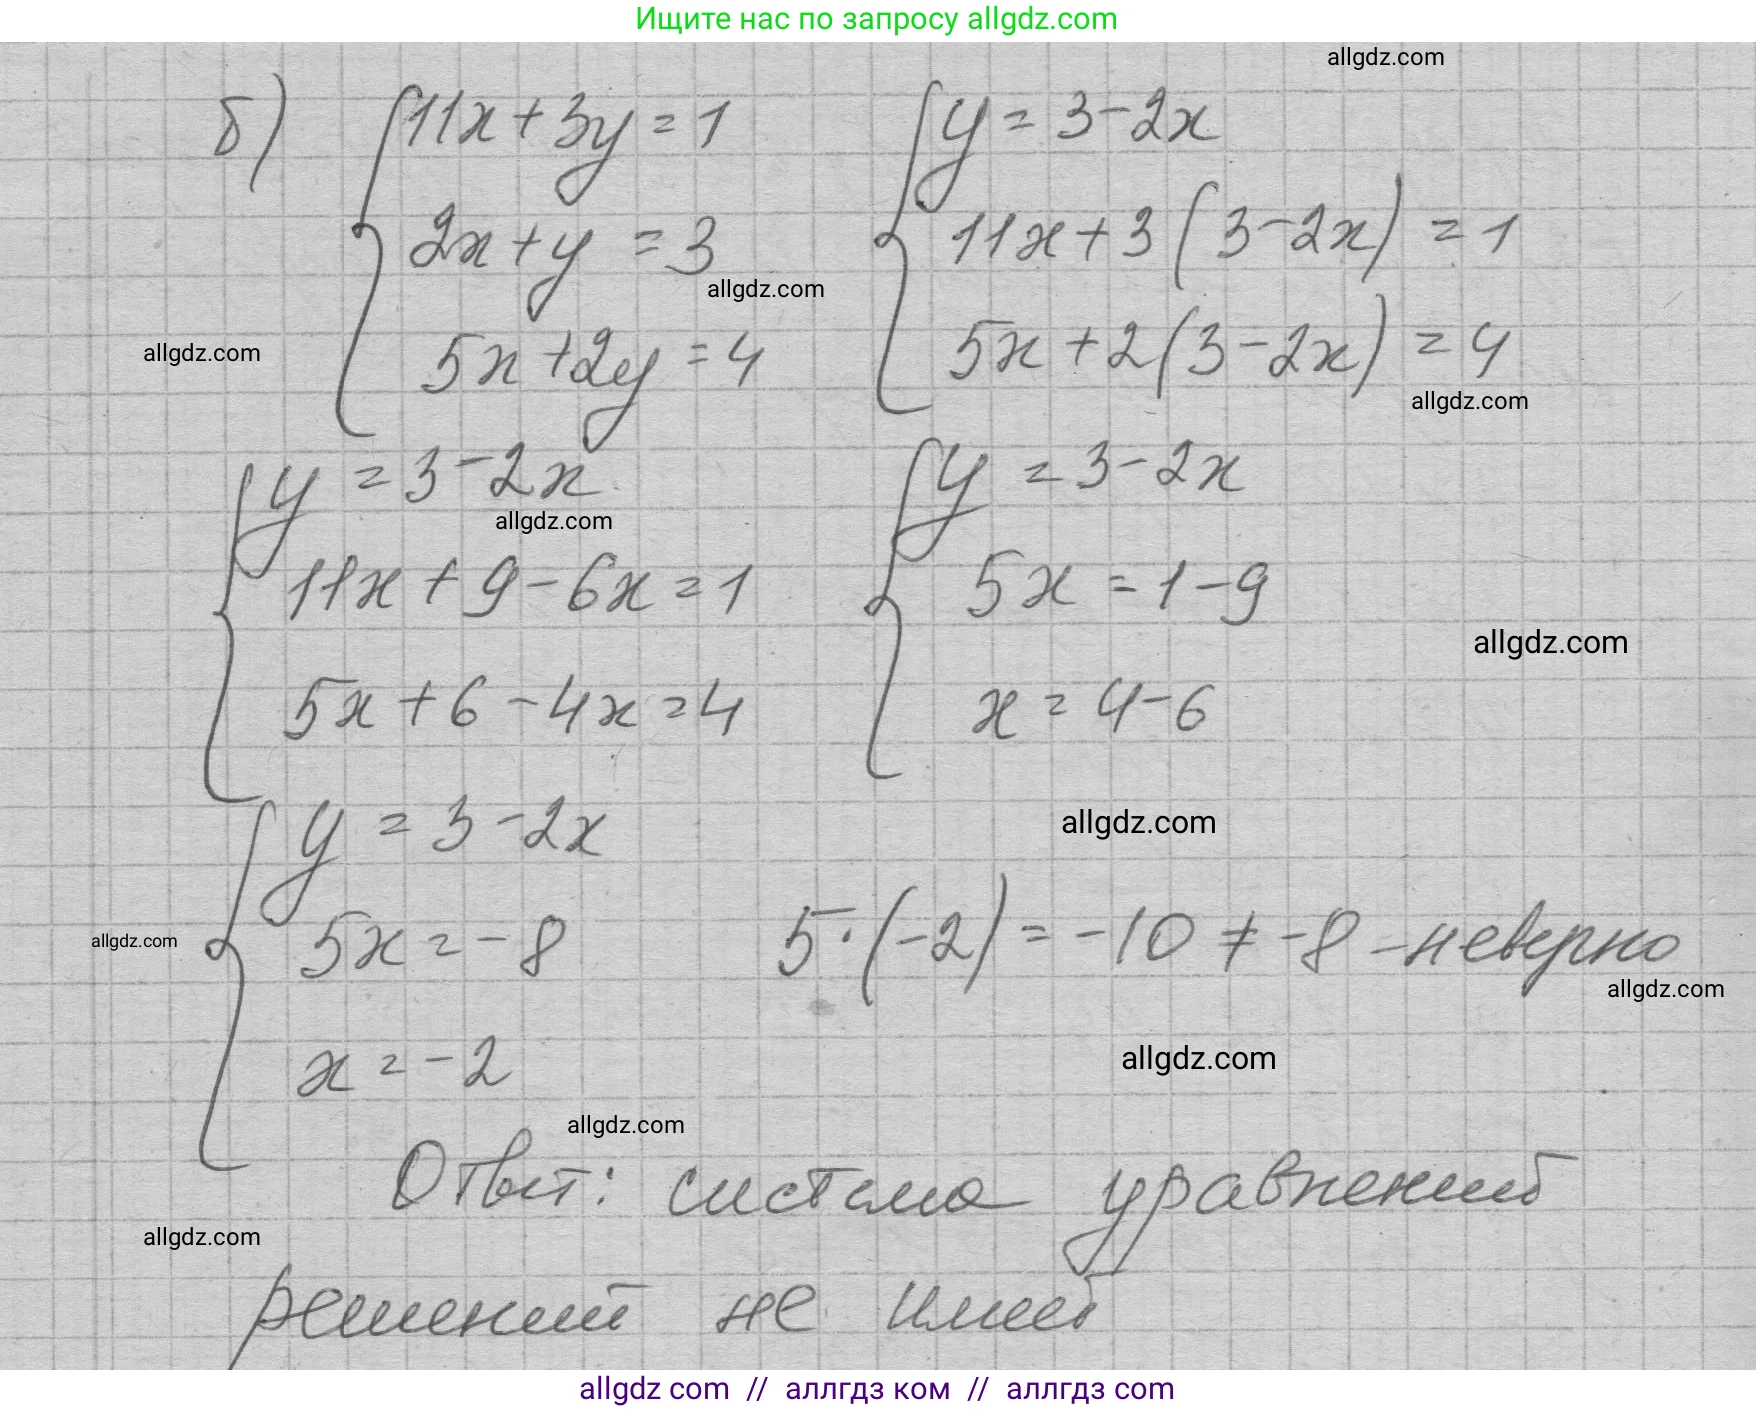 Ищите нас по запросу allgdz.com
allgdz.com
б) 11x + 3y = 1
2x + y = 3
5x + 2y = 4
y = 3 - 2x
11x + 3(3 - 2x) = 1
5x + 2(3 - 2x) = 4
allgdz.com
allgdz.com
allgdz.com
y = 3 - 2x
11x + 9 - 6x = 1
5x + 6 - 4x = 4
y = 3 - 2x
5x = 1 - 9
x = 4 - 6
allgdz.com
allgdz.com
allgdz.com
y = 3 - 2x
5x = -8
x = -2
5·(-2) = -10 ≠ -8 - неверно
allgdz.com
allgdz.com
allgdz.com
allgdz.com
Ответ: система уравнений
allgdz.com
решений не имеет
allgdz com // аллгдз ком // аллгдз com